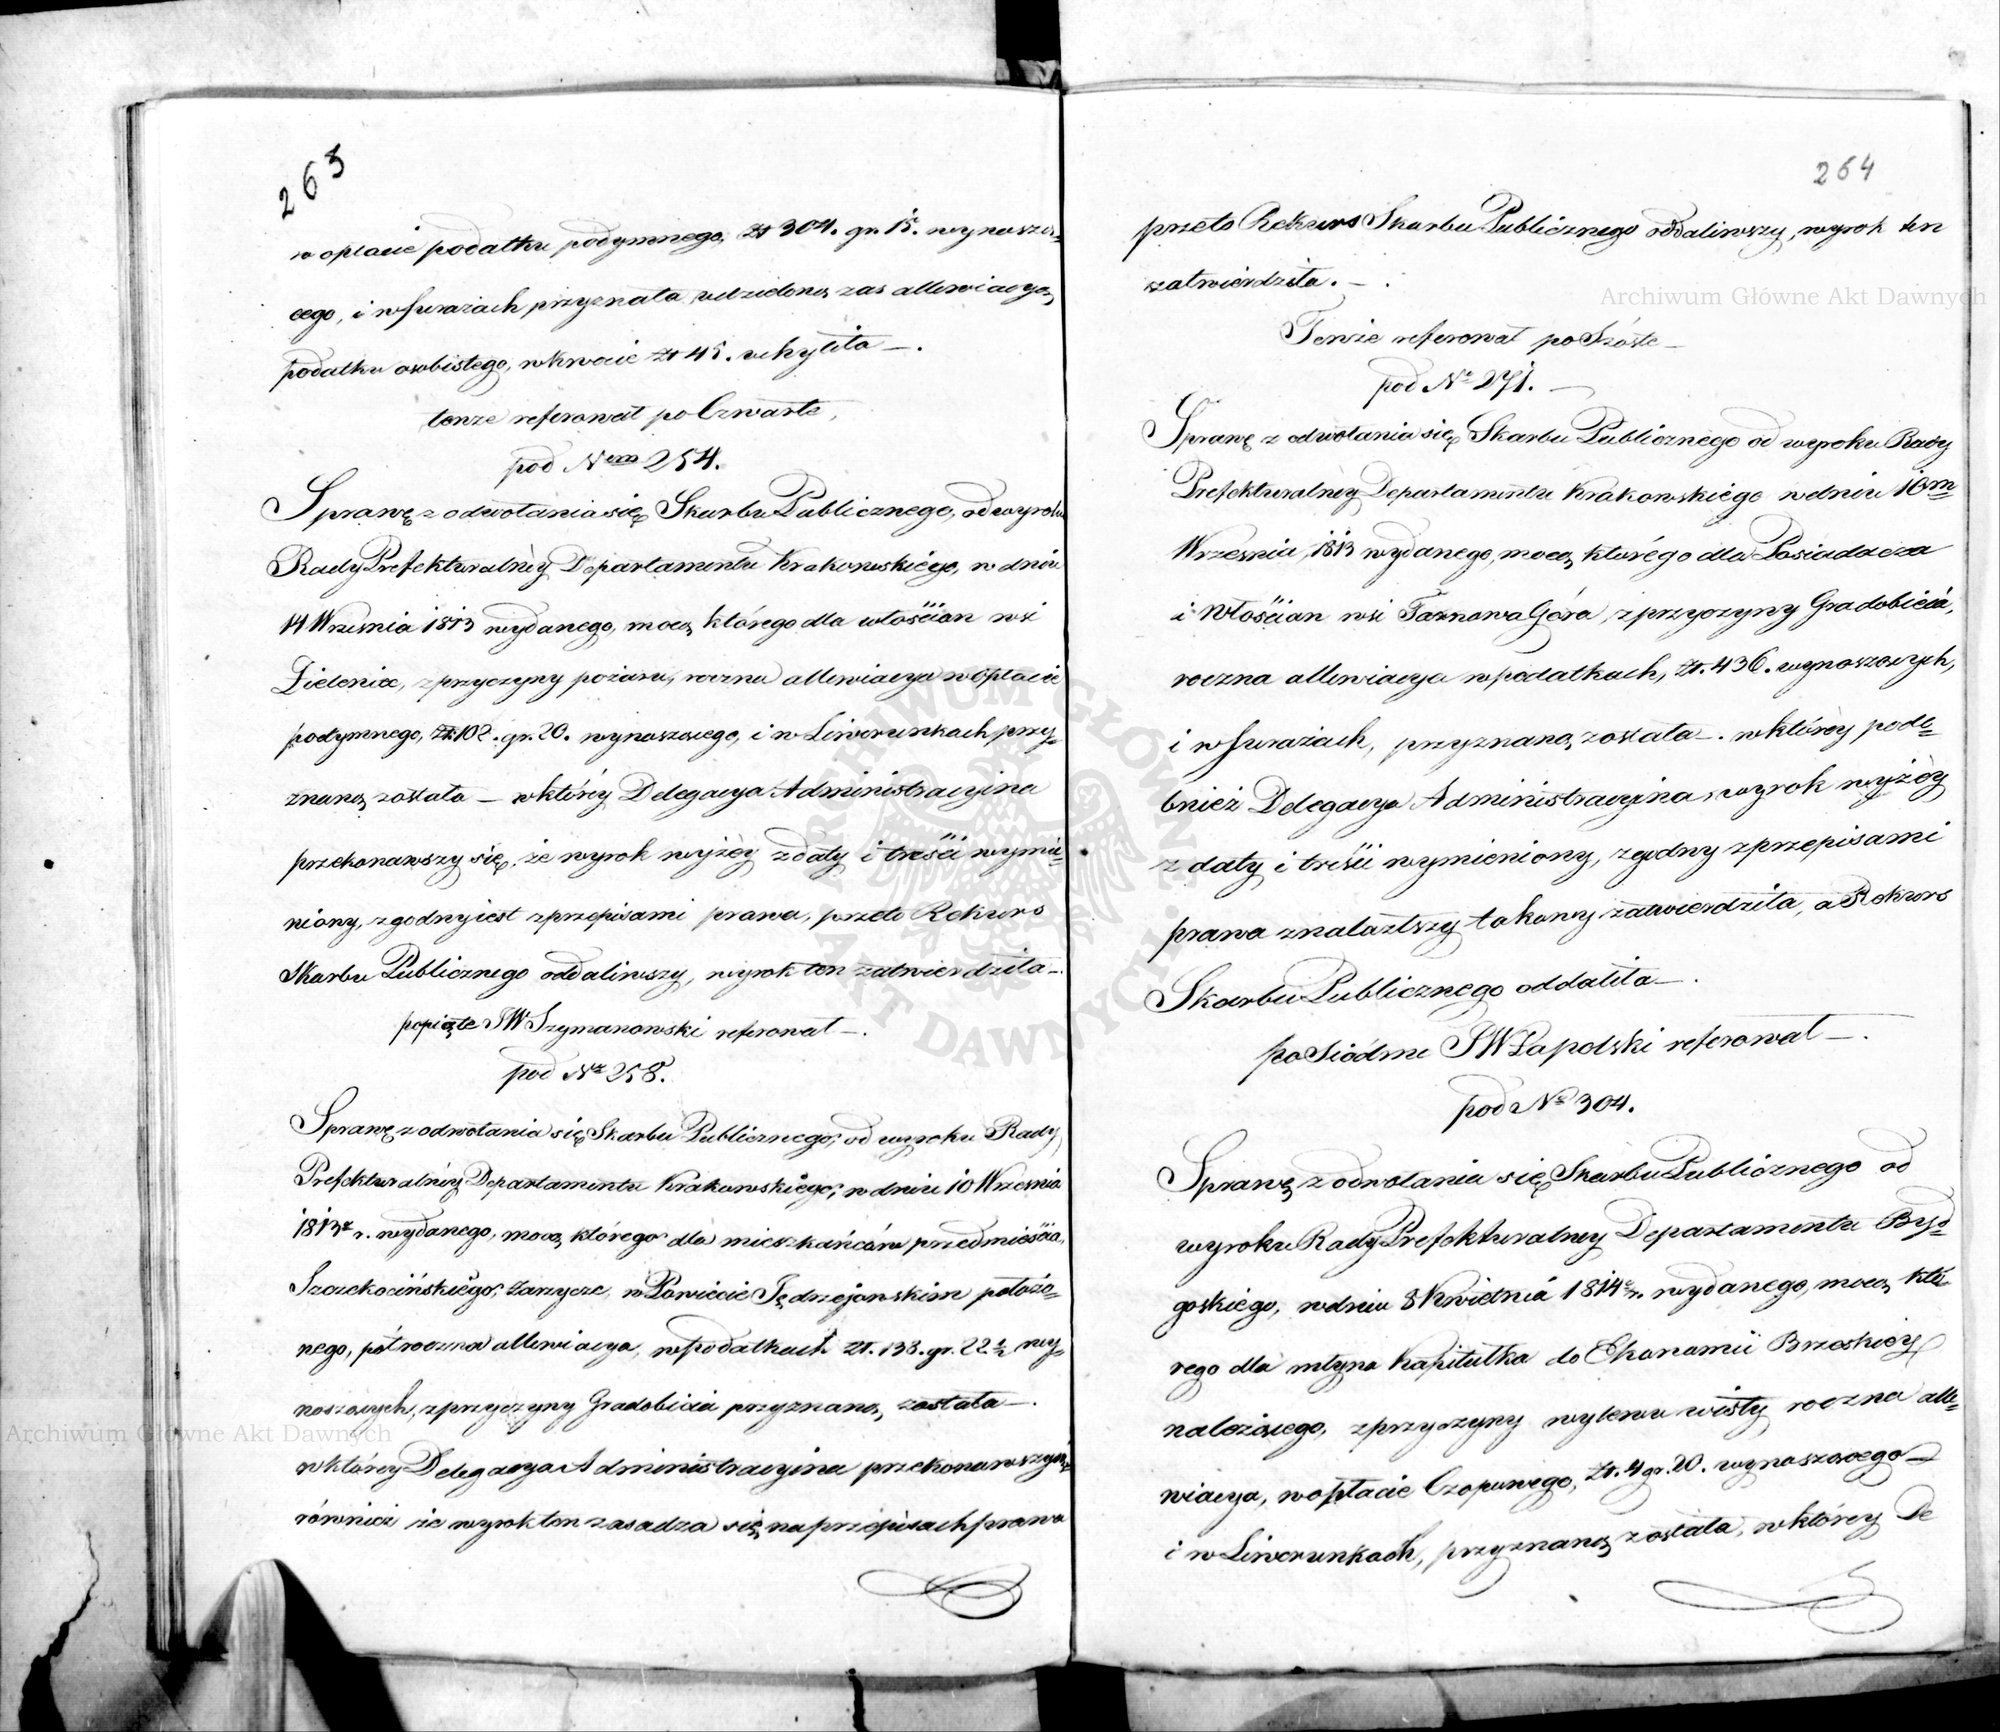 263
w opłacie podatku podymnego, Zł 304. gr. 15. wynoszą=
cego, i w furażach przyznała, udzieloną zaś allewiacyą,
podatku osobistego, w kwocie Zł 45. uchyliła —.
tenże referował po Czwarte,
pod Nem 254.
Sprawę z odwołania się, Skarbu Publicznego, od wyroku
Rady Prefekturalnéy Departamentu Krakowskiego, w dniu
14 Września 1813 wydanego, mocą którego dla włościan wsi
Zielenice, z przyczyny pożaru, roczna allewiacya w opłacie
podymnego, Zł. 102. gr. 20. wynoszącego, i w Liwerunkach przy=
znaną została — w któréy Delegacya Administracyina
przekonawszy się, że wyrok wyżéy z daty i treści wymie=
niony, zgodny iest z przepisami prawa, przeto Rekurs
Skarbu Publicznego oddaliwszy, wyrok ten zatwierdziła —.
popiąte JW Szymanowski referował —.
pod Nr 258.
Sprawę z odwołania się Skarbu Publicznego, od wyroku Rady
Prefekturalnéy Departamentu Krakowskiego, w dniu 10 Września
1813 r. wydanego, mocą którego dla mieszkańców przedmieścia,
Szczekocińskiego, Zarzycze, w Powiecie Jędrzejowskim położo=
nego, półroczna allewiacya, w podatkach Zł. 138. gr. 22 ½ wy=
noszących, z przyczyny Gradobicia przyznaną, została —.
w któréy Delegacya Administracyina przekonawszy się
również że wyrok ten zasadza się na przepisach prawa
264
przeto Rekurs Skarbu Publicznego oddaliwszy, wyrok ten
zatwierdziła. —.
Tenże referował po Szóste —
pod Nr 271. —
Sprawę z odwołania się, Skarbu Publicznego od wyroku Rady
Prefekturalnéy Departamentu Krakowskiego w dniu 10m
Września 1813 wydanego, mocą którego dla Posiadacza
i Włościan wsi Tarnowa Góra, z przyczyny Gradobicia,
roczna allewiacya w podatkach, Zł. 436. wynoszących,
i w furażach, przyznaną została —. w któréy podo=
bnież Delegacya Administracyina, wyrok wyżéy
z daty i treści wymieniony, zgodny z przepisami
prawa znalazłszy takowy zatwierdziła, a Rekurs
Skarbu Publicznego oddaliła —.
po Siódme JW Łapolski referował —.
pod Nr 304.
Sprawę z odwołania się Skarbu Publicznego od
wyroku Rady Prefekturalney Departamentu Byd=
goskiego, w dniu 8 Kwietnia 1814 r. wydanego, mocą któ=
rego dla młyna Kapitułka do Ekonomii Brzeskiéy
należącego, z przyczyny wylewu wisły roczna alle=
wiacya, w opłacie Czopowego, Zł. 4 gr. 20. wynoszącego —
i w Liwerunkach, przyznaną została, w któréy De